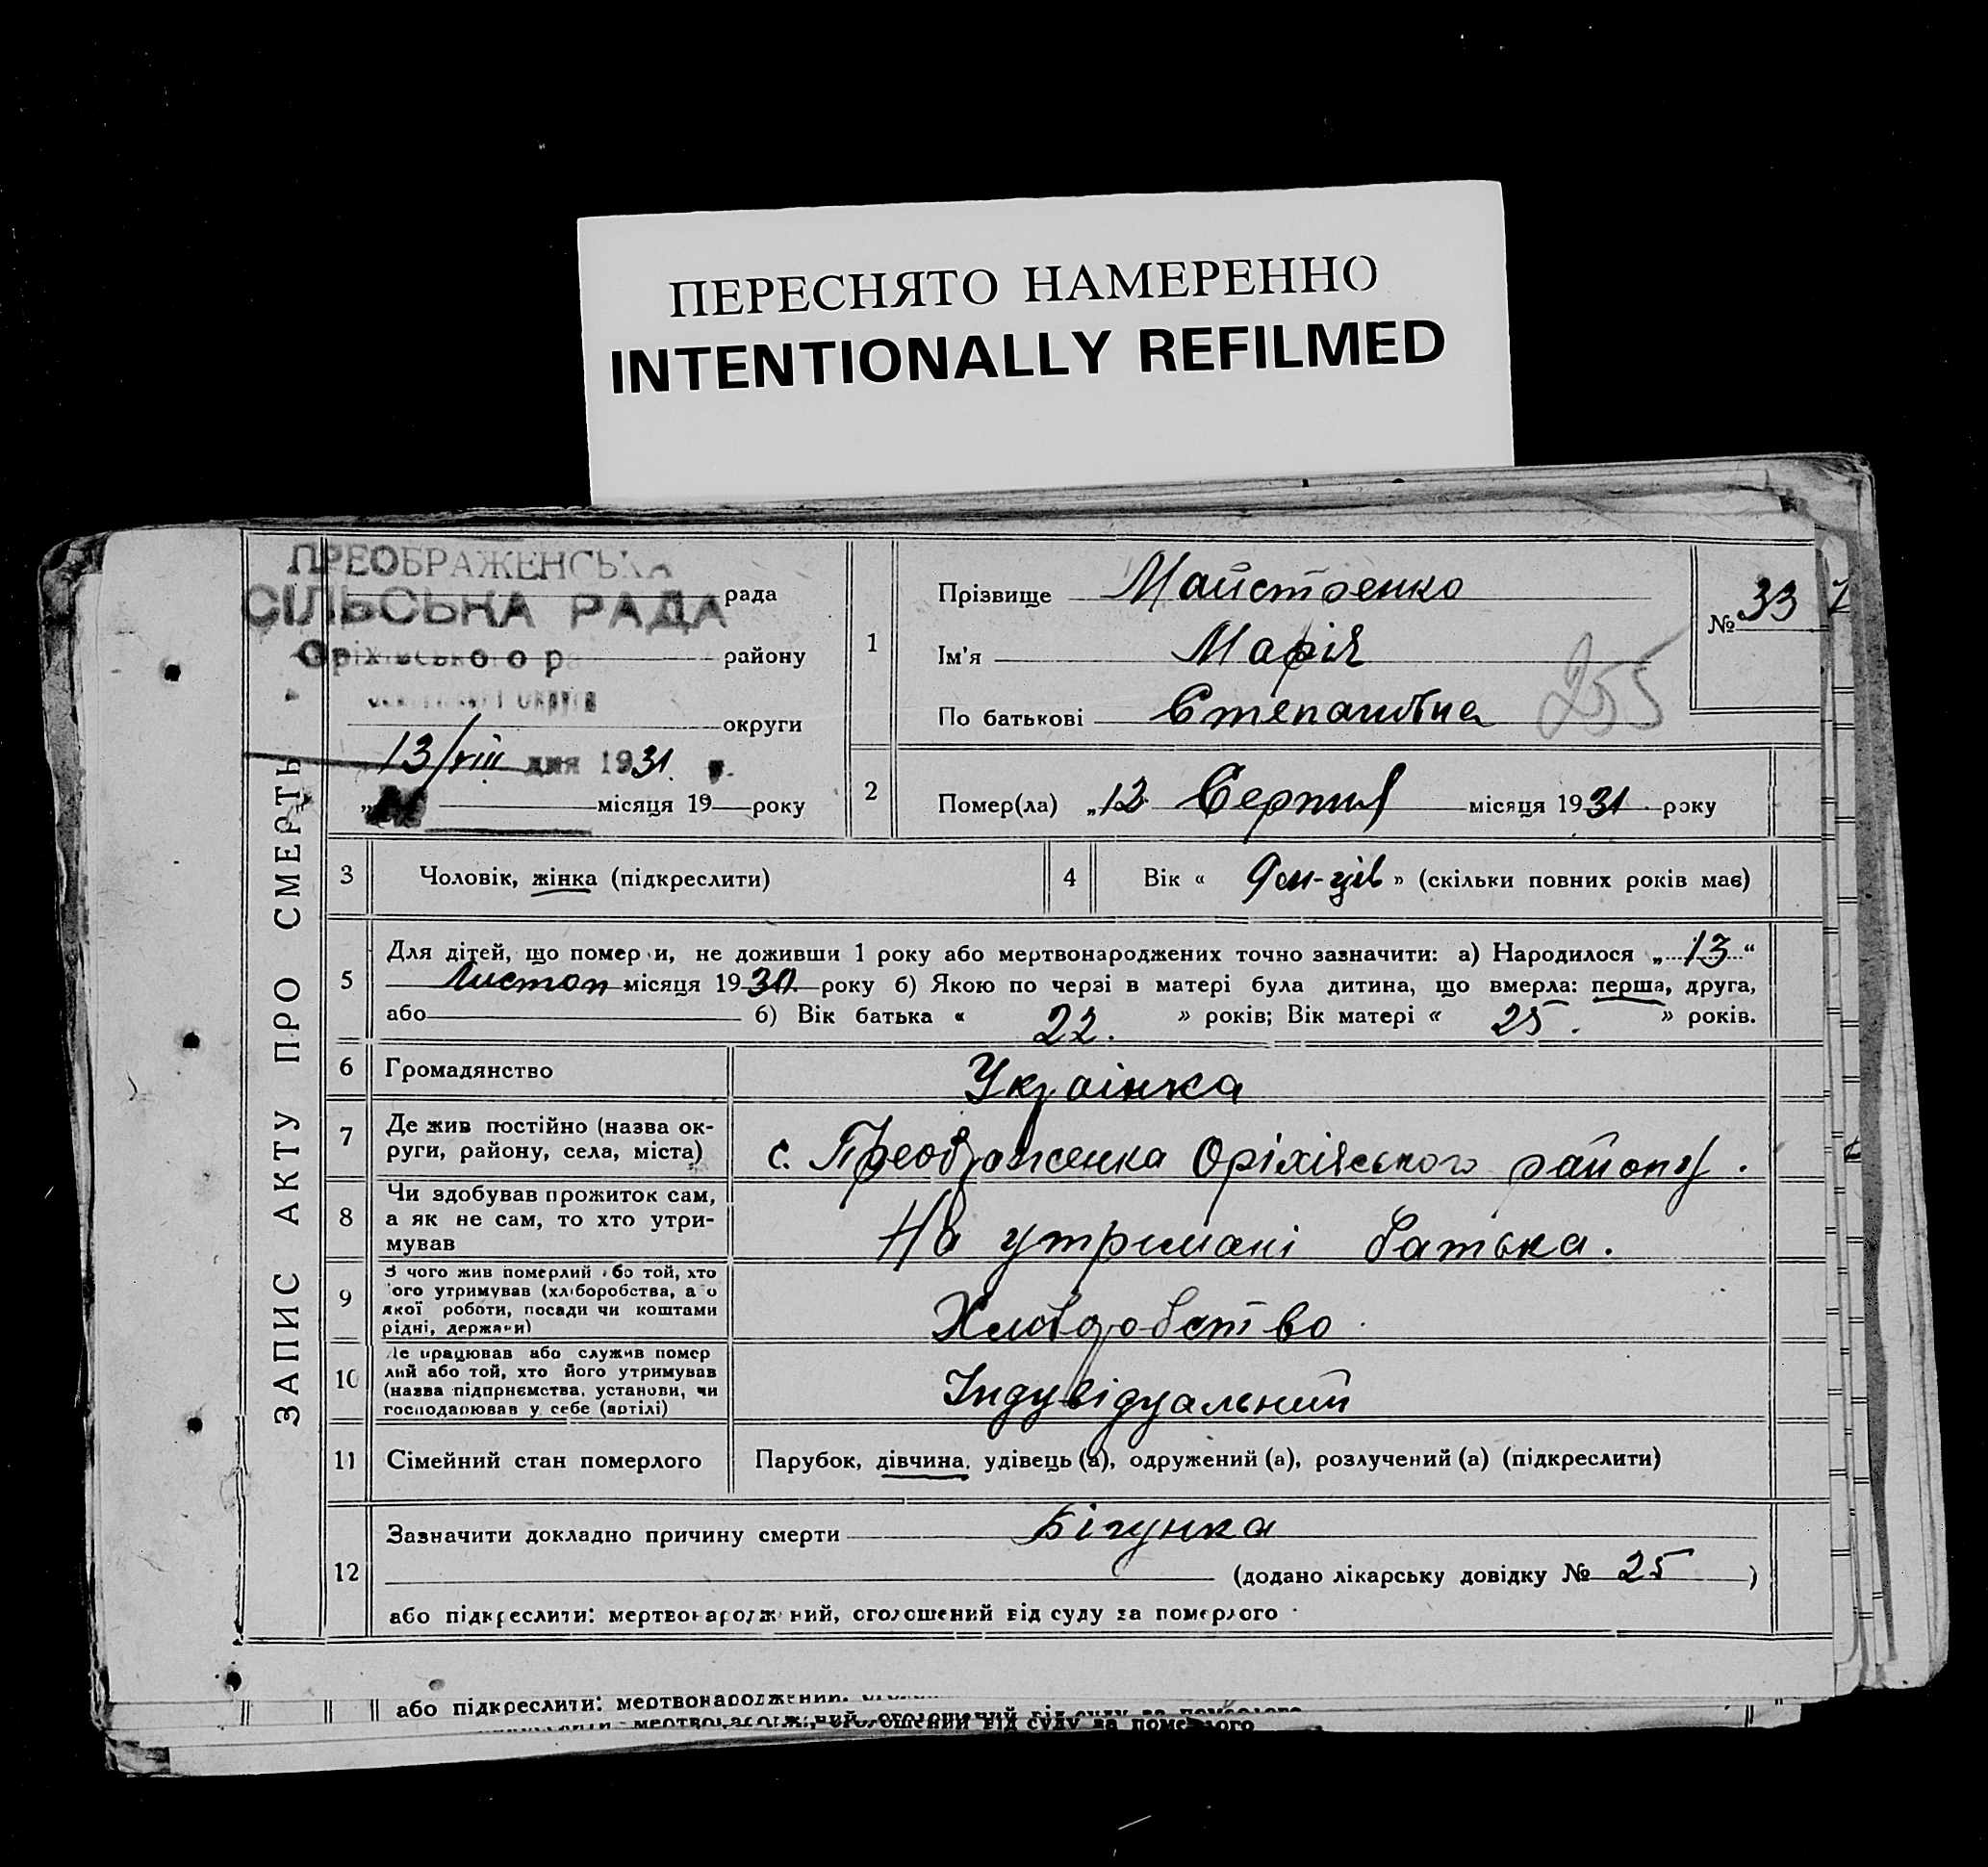 ПЕРЕСНЯТО НАМЕРЕННО
INTENTIONALLY REFILMED
ЗАПИС АКТУ ПРО СМЕРТЬ
ПРЕОБРАЖЕНСЬКА
СІЛЬСЬКА РАДА рада
Оріхівського р району
округи
13/VIII дня 1931 р.
місяця 19 року
1
Прізвище Майстренко
Ім'я Марія
По батькові Степановна
№ 33
255
2
Помер(ла) „12 Серпня місяця 1931 року
3 Чоловік, жінка (підкреслити)
4 Вік « 9 м-ців » (скільки повних років має)
5
Для дітей, що померли, не доживши 1 року або мертвонароджених точно зазначити: а) Народилося „13“
Листоп місяця 1930 року б) Якою по черзі в матері була дитина, що вмерла: перша, друга,
або б) Вік батька « 22. » років; Вік матері « 25. » років.
6 Громадянство Украінка
7 Де жив постійно (назва ок-
руги, району, села, міста)
с. Преображенка Оріхівського району.
8 Чи здобував прожиток сам,
а як не сам, то хто утри-
мував
На утримані батька.
9 З чого жив померлий або той, хто
його утримував (хліборобства, а о
якої роботи, посади чи коштами
рідні, держави)
Хліборобство
10 Де працював або служив помер
лий або той, хто його утримував
(назва підприємства, установи, чи
господарював у себе (артілі)
Індувідуальний
11 Сімейний стан померлого Парубок, дівчина, удівець (а), одружений (а), розлучений (а) (підкреслити)
12
Зазначити докладно причину смерти Бігунка
(додано лікарську довідку № 25 )
або підкреслити: мертвонароджений, оголошений від суду за померлого
або підкреслити: мертвонароджений,
мертвонароджений, оголошений від суду за померлого